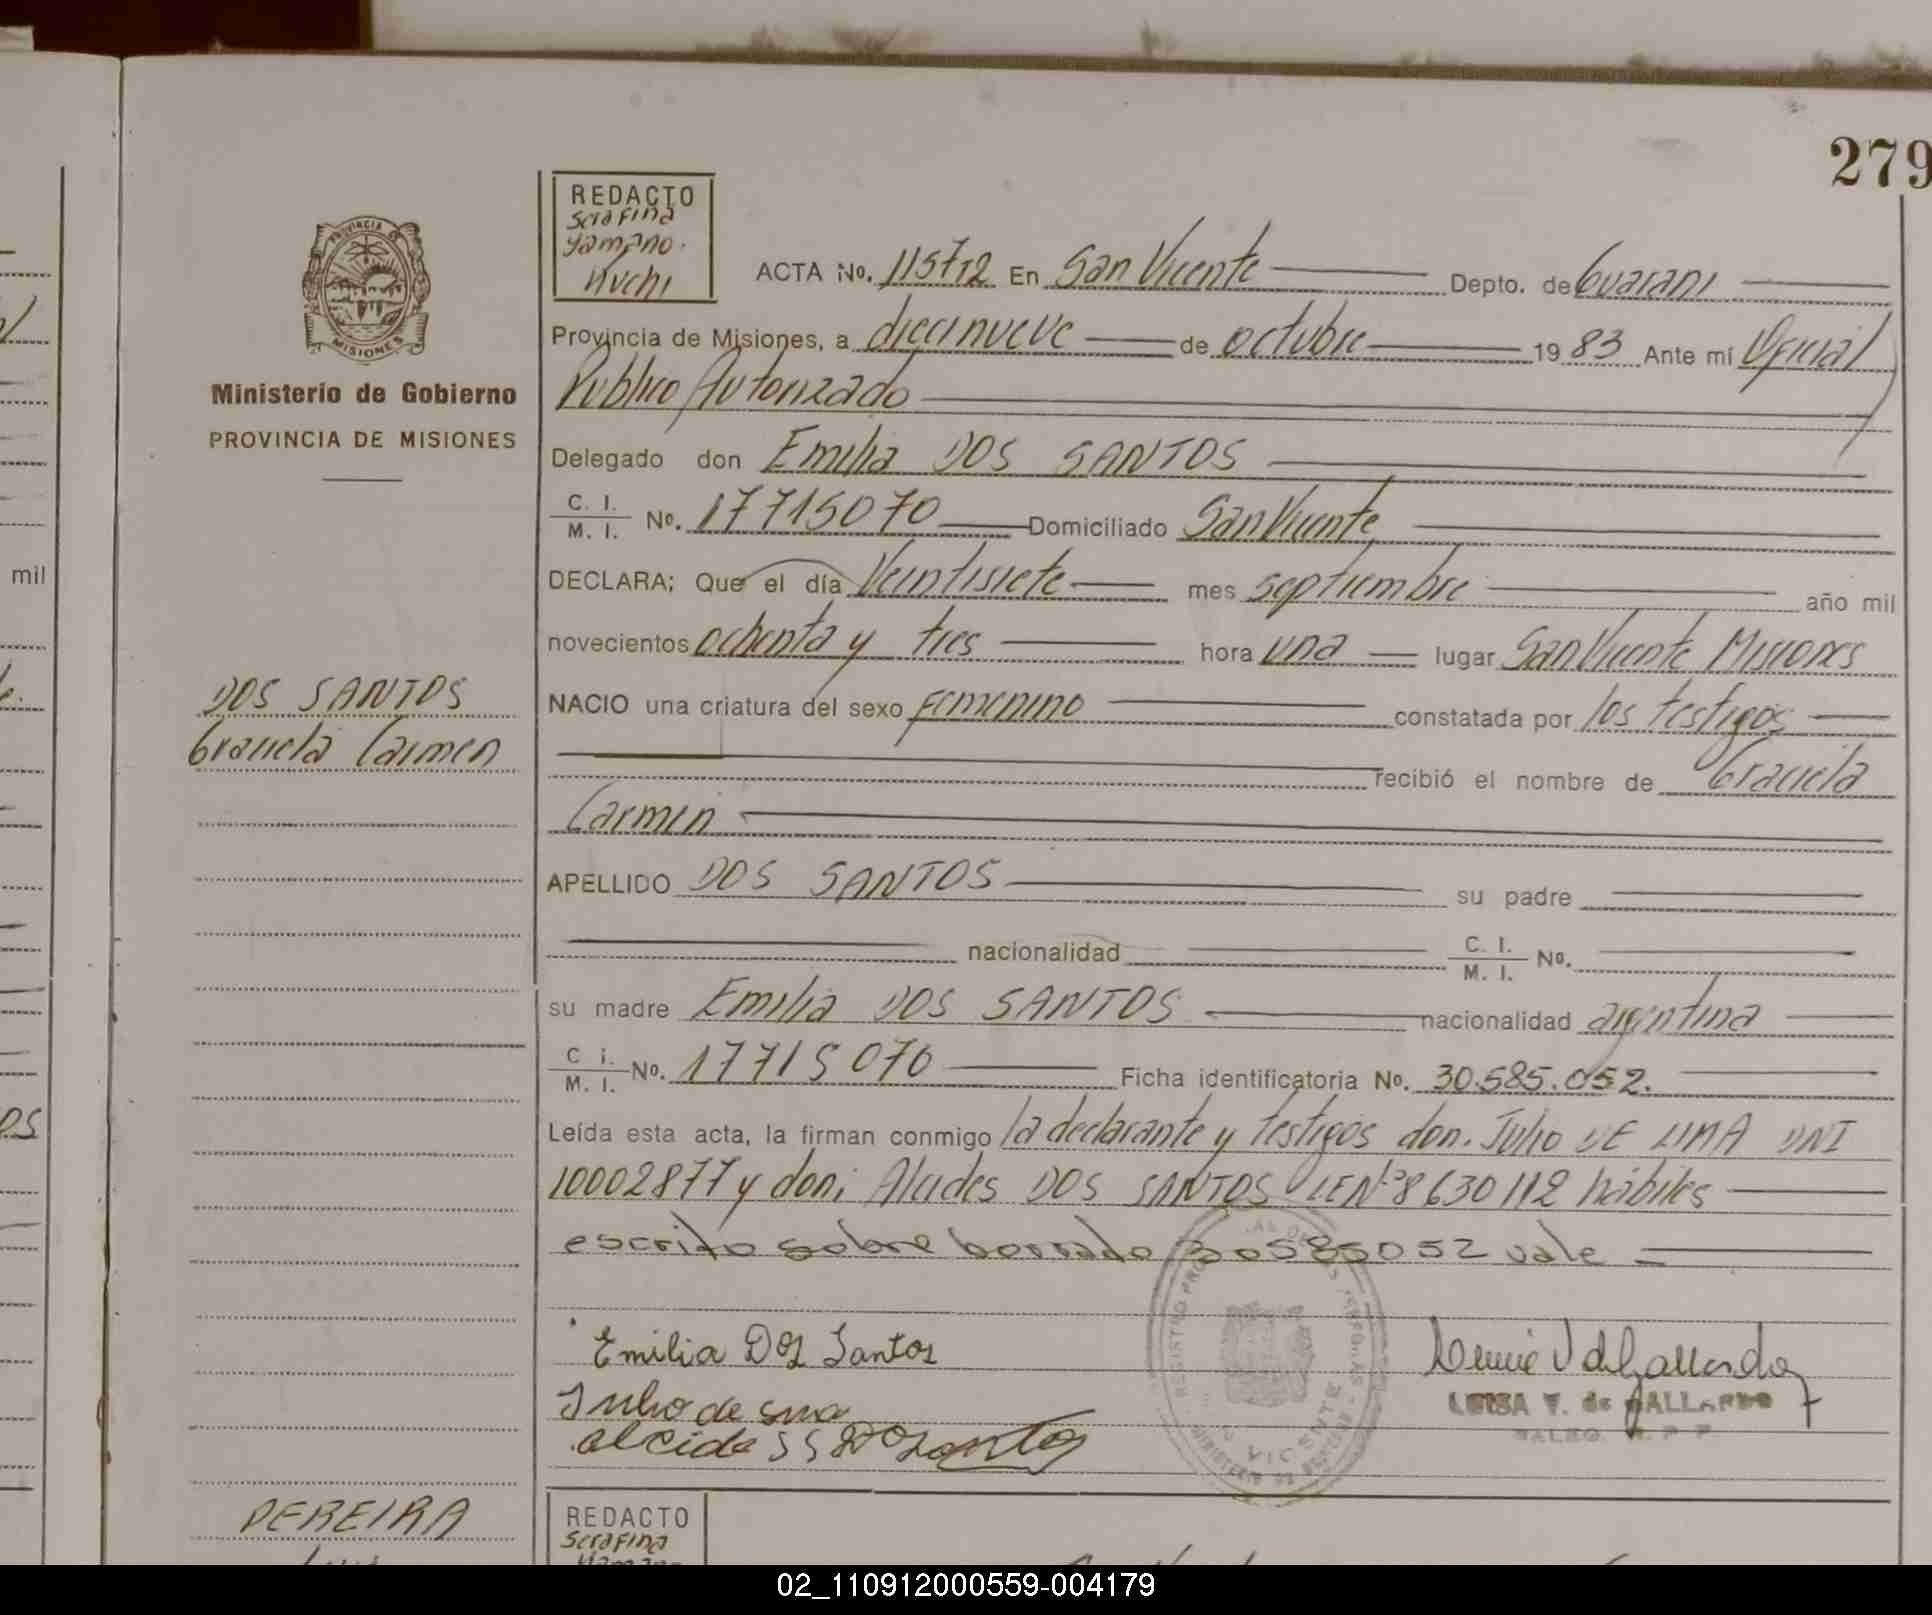 279
REDACTO
Serafina
Yamano
Kuchi
PROVINCIA DE
MISIONES
Ministerio de Gobierno
PROVINCIA DE MISIONES
ACTA No. 115712 En San Vicente Depto. de Guarani
Provincia de Misiones, a diecinueve de octubre 19 83 Ante mí Oficial
Publico Autorizado
Delegado don Emilia DOS SANTOS
C. I. / M. I. No. 17715070 Domiciliado San Vicente
DECLARA; Que el día Veintisiete mes septiembre año mil
novecientos ochenta y tres hora una lugar San Vicente Misiones
NACIO una criatura del sexo femenino constatada por los testigos
recibió el nombre de Graciela
Carmen
APELLIDO DOS SANTOS su padre
nacionalidad C. I. / M. I. No.
su madre Emilia DOS SANTOS nacionalidad argentina
C i. / M. I. No. 17715070 Ficha identificatoria No. 30.585.052.
Leída esta acta, la firman conmigo la declarante y testigos don. Julio DE LIMA DNI
10002877 y don: Alcides DOS SANTOS LE Nº 8630112 hábiles
escrito sobre borrado 30585052 vale
DOS SANTOS
Graciela Carmen
Emilia Dos Santos
Julio de
alcide
LUISA V. de GALLARDO
VICENTE
PEREIRA
REDACTO
Serafina
mil
02_110912000559-004179